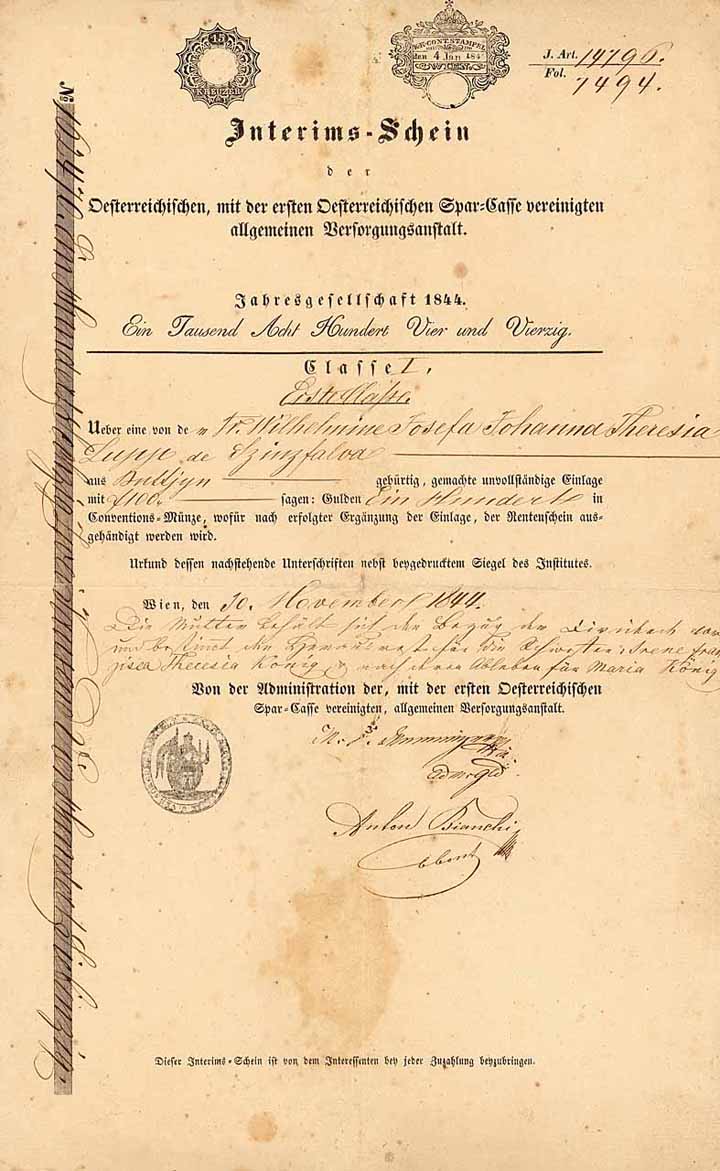 15
KREUZER
K.K. CONT. STAMPEL
den 4 Jan 184
WIEN
J. Art. 14796.
Fol. 7494.
Interims-Schein
der
Oesterreichischen, mit der ersten Oesterreichischen Spar-Casse vereinigten
allgemeinen Versorgungsanstalt.
Jahresgesellschaft 1844.
Ein Tausend Acht Hundert Vier und Vierzig.
Classe I.
Erste Klasse.
Ueber eine von de r Fr. Wilhelmine Josefa Johanna Theresia
Lupp de
aus gebürtig, gemachte unvollständige Einlage
mit f 100. sagen: Gulden Ein Hundert in
Conventions-Münze, wofür nach erfolgter Ergänzung der Einlage, der Rentenschein aus-
gehändigt werden wird.
Urkund dessen nachstehende Unterschriften nebst beygedrucktem Siegel des Institutes.
Wien, den 30. November 1844.
Die Mutter behält sich den Bezug der
und bestimmt für die Schwester Irene Fran
zisca Theresia König & nach deren Ableben für Maria König
Von der Administration der, mit der ersten Oesterreichischen
Spar-Casse vereinigten, allgemeinen Versorgungsanstalt.
Anton Bianchi
Dieser Interims-Schein ist von dem Interessenten bey jeder Zuzahlung beyzubringen.
No